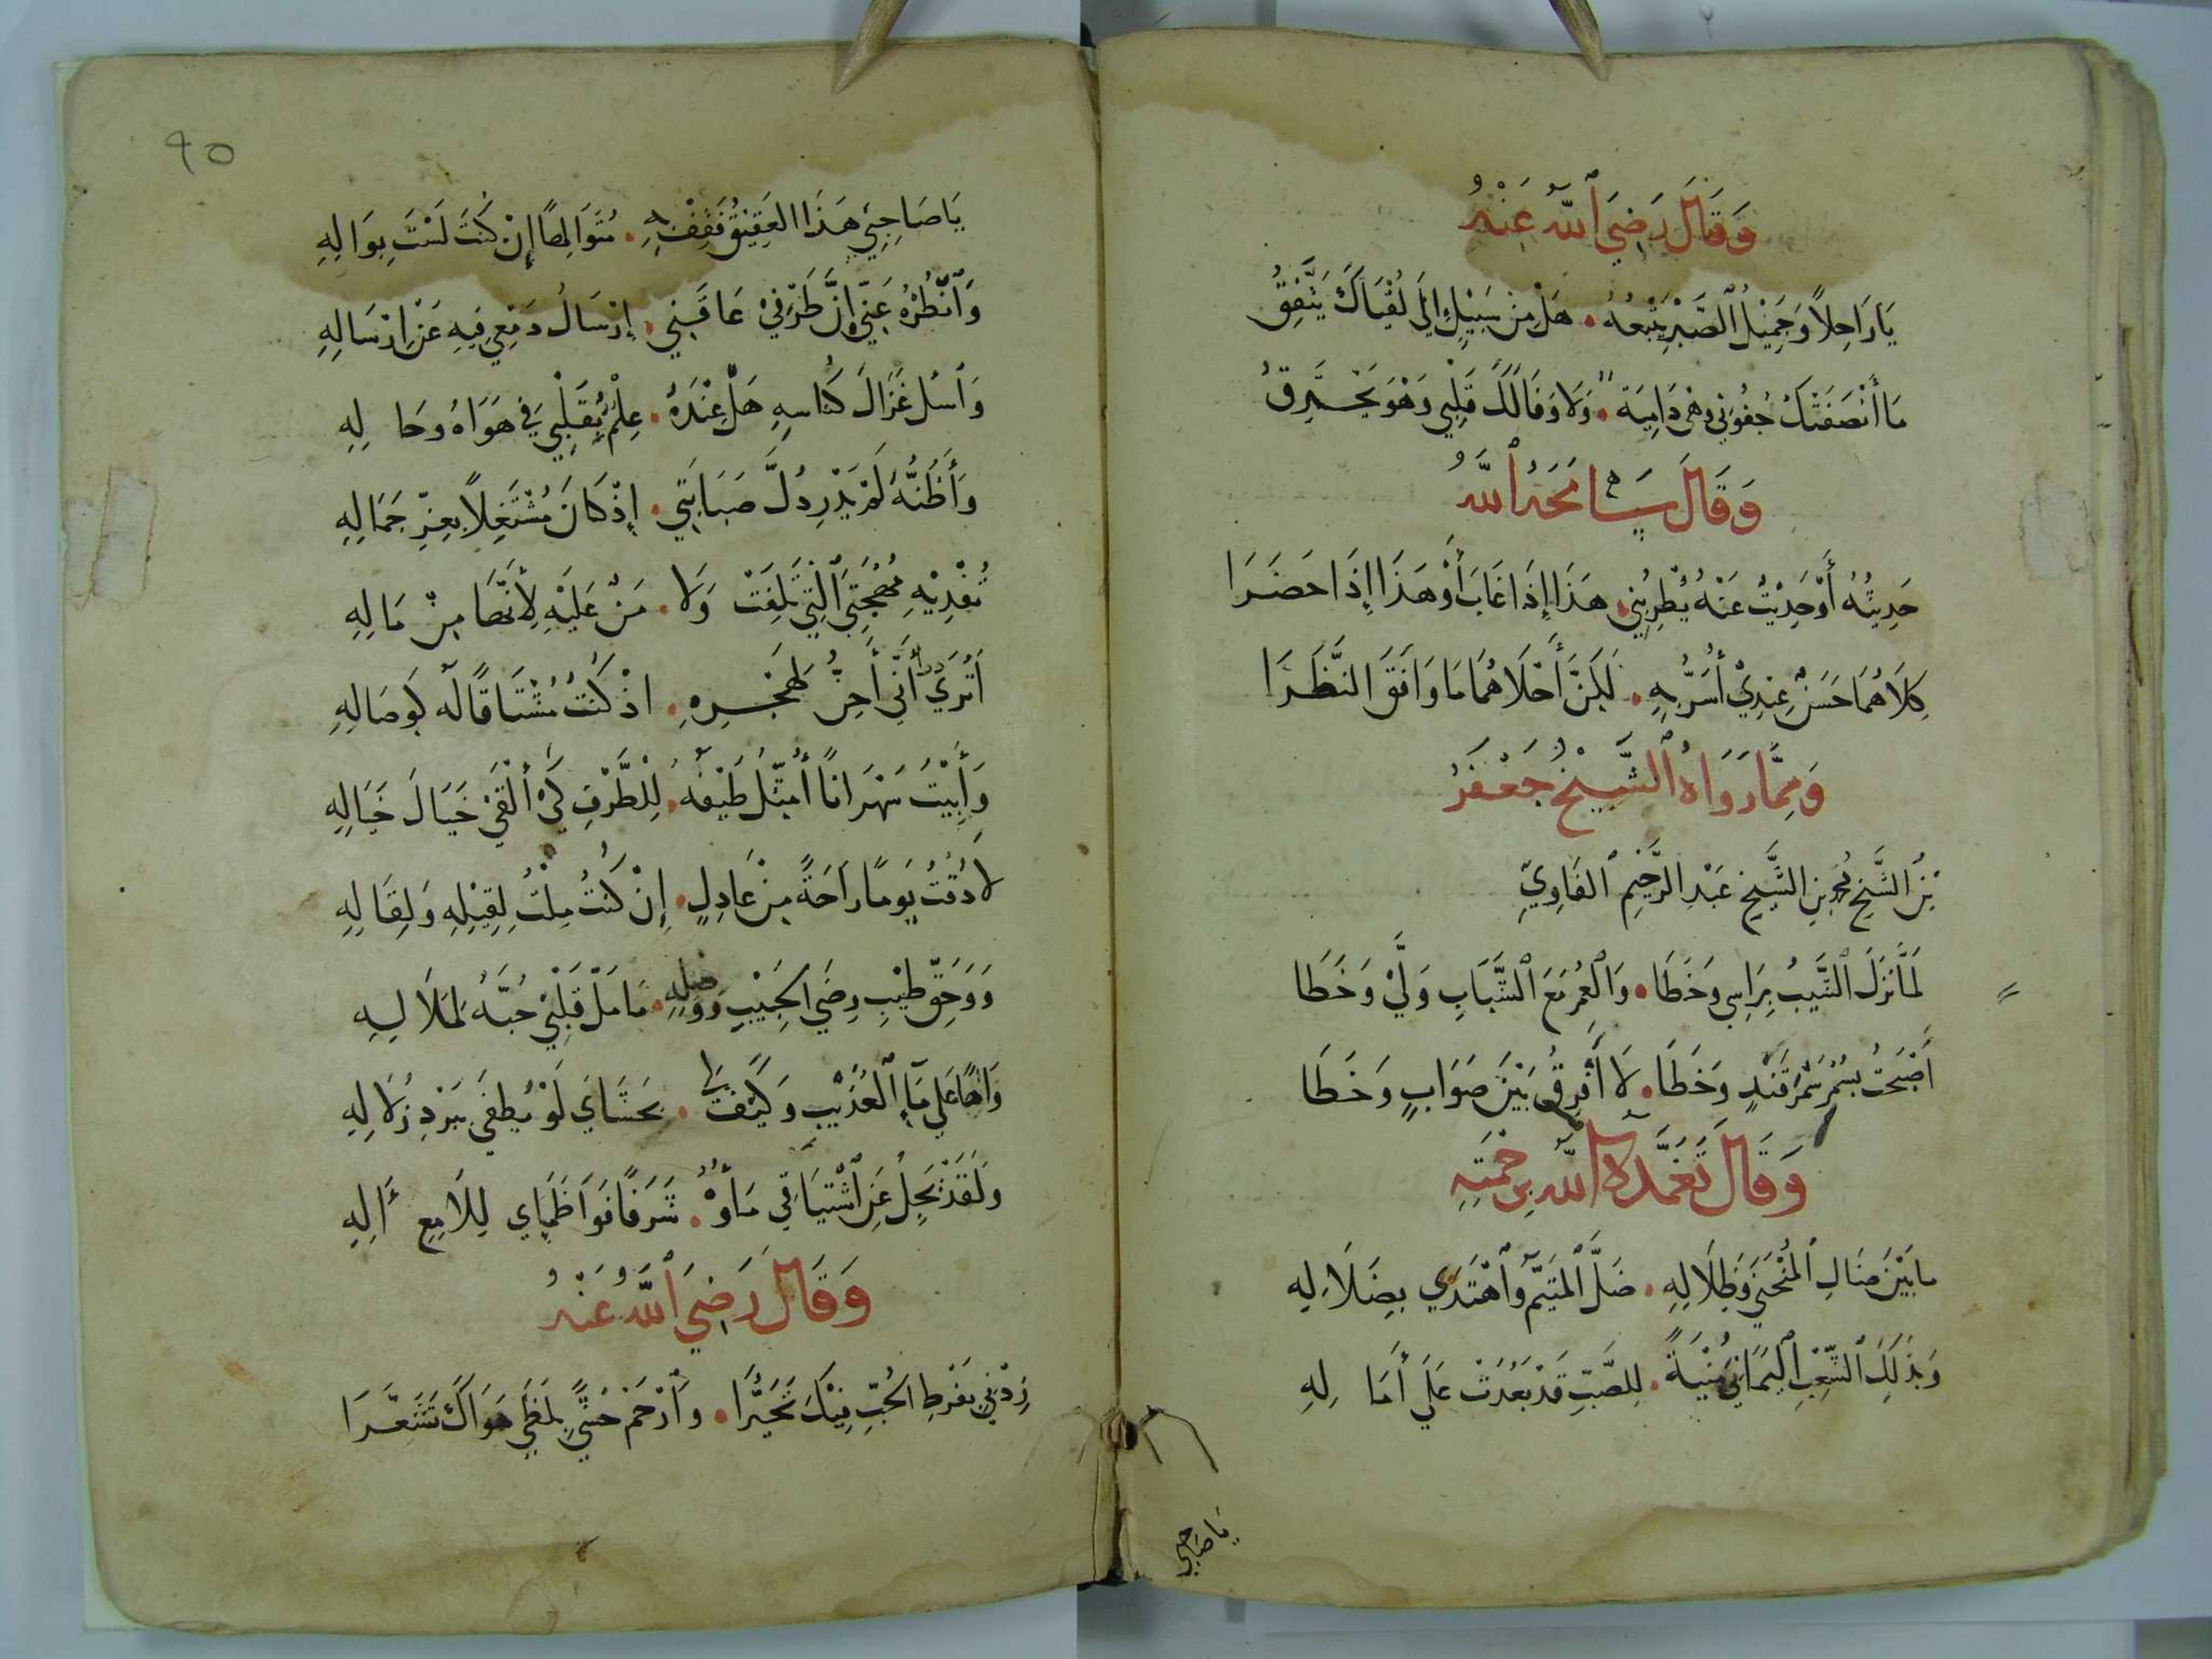 وَقَالَ رَضِيَ ٱللَّهُ عَنْهُ
يَا رَاحِلاً وَجَمِيْلُ ٱلصَّبْرِ يَتْبَعُهُ . هَلْ مِنْ سَبِيْلٍ إِلَى لُقْيَاكَ يَتَّفِقُ
مَا أَنْصَفَتْكَ جُفُوْنِي وَهْيَ دَامِيَةٌ . وَلَا وَفَا لَكَ قَلْبِي وَهْوَ يَحْتَرِقُ
وَقَالَ سَامَحَهُ ٱللَّهُ
حَدِيْثُهُ أَوْ حَدِيْثٌ عَنْهُ يُطْرِبُنِي . هَذَا إِذَا غَابَ أَوْ هَذَا إِذَا حَضَرَا
كِلَاهُمَا حَسَنٌ عِنْدِيْ أُسَرُّ بِهِ . لَكِنَّ أَحْلَاهُمَا مَا وَافَقَ النَّظَرَا
وَمِمَّا رَوَاهُ ٱلشَّيْخُ جَعْفَرُ
بْنُ الشَّيْخِ بْنِ الشَّيْخِ عَبْدِ الرَّحِيْمِ
لَمَّا نَزَلَ ٱلشَّيْبُ بِرَاسِي وَخَطَا . وَٱلْعُمْرُ مَعَ ٱلشَّبَابِ وَلَّى وَخَطَا
أَصْبَحْتُ بِسُمْرِ سَمَرْقَنْدٍ وَخَطَا . لَا أَفْرِقُ بَيْنَ صَوَابٍ وَخَطَا
وَقَالَ تَغَمَّدَهُ ٱللَّهُ بِرَحْمَتِهِ
مَا بَيْنَ ضَالِ ٱلْمُنْحَنَى وَظِلَالِهِ . ضَلَّ ٱلْمُتَيَّمُ وَٱهْتَدَى بِضَلَالِهِ
وَبِذَلِكَ ٱلشِّعْبِ ٱلْيَمَانِيِّ مُنْيَةٌ . لِلصَّبِّ قَدْ بَعُدَتْ عَلَى أَمَالِهِ
يَا صَاحِبِي
٩٥
يَا صَاحِبِي هَذَا العَقِيْقُ فَقِفْ بِهِ . مُتَوَالِهًا إِنْ كُنْتَ لَسْتَ بِوَالِهِ
وَٱنْظُرْهُ عَنِّي إِنَّ طَرْفِيْ عَاقَنِي . إِرْسَالُ دَمْعِي فِيْهِ عَنْ إِرْسَالِهِ
وَٱسْلْ غَزَالَ كِنَاسِهِ هَلْ عِنْدَهُ . عِلْمٌ بِقَلْبِي فِي هَوَاهُ وَحَالِهِ
وَأَظُنُّهُ لَمْ يَدْرِ ذُلَّ صَبَابَتِي . إِذْ كَانَ مُشْتَغِلاً بِعِزِّ جَمَالِهِ
تَفْدِيْهِ مُهْجَتِيَ ٱلَّتِي تَلِفَتْ وَلَا . مَنٌّ عَلَيْهِ لِأَنَّهَا مِنْ مَالِهِ
أَتُرَى دَرَى أَنِّي أَحِنُّ لِهَجْرِهِ . إِذْ كُنْتُ مُشْتَاقًا لَهُ كَوِصَالِهِ
وَأَبِيْتُ سَهْرَانًا أُمَثِّلُ طَيْفَهُ . لِلطَّرْفِ كَيْ أَلْقَى خَيَالَ خَيَالِهِ
لَا ذُقْتُ يَوْمًا رَاحَةً مِنْ عَاذِلٍ . إِنْ كُنْتُ مِلْتُ لِقِيْلِهِ وَلِقَالِهِ
وَوَحَقِّ طِيْبِ رِضَى الحَبِيْبِ وَوَصْلِهِ . مَا مَلَّ قَلْبِيْ حُبَّهُ لِمَلَالِهِ
وَاهًا عَلَى مَاءِ ٱلْعُذَيْبِ وَكَيْفَ لِي . بِحَشَايَ لَوْ يُطْفَى بِبَرْدِ زُلَالِهِ
وَلَقَدْ يَجِلُّ عَنِ ٱشْتِيَاقِي مَاؤُهُ . شَرَفًا فَوَا ظَمَاي لِلَامِعِ آلِهِ
وَقَالَ رَضِيَ ٱللَّهُ عَنْهُ
زِدْنِي بِفَرْطِ الحُبِّ فِيْكَ تَحَيُّرًا . وَٱرْحَمْ حَشًى بِلَظَى هَوَاكَ تَسَعَّرَا